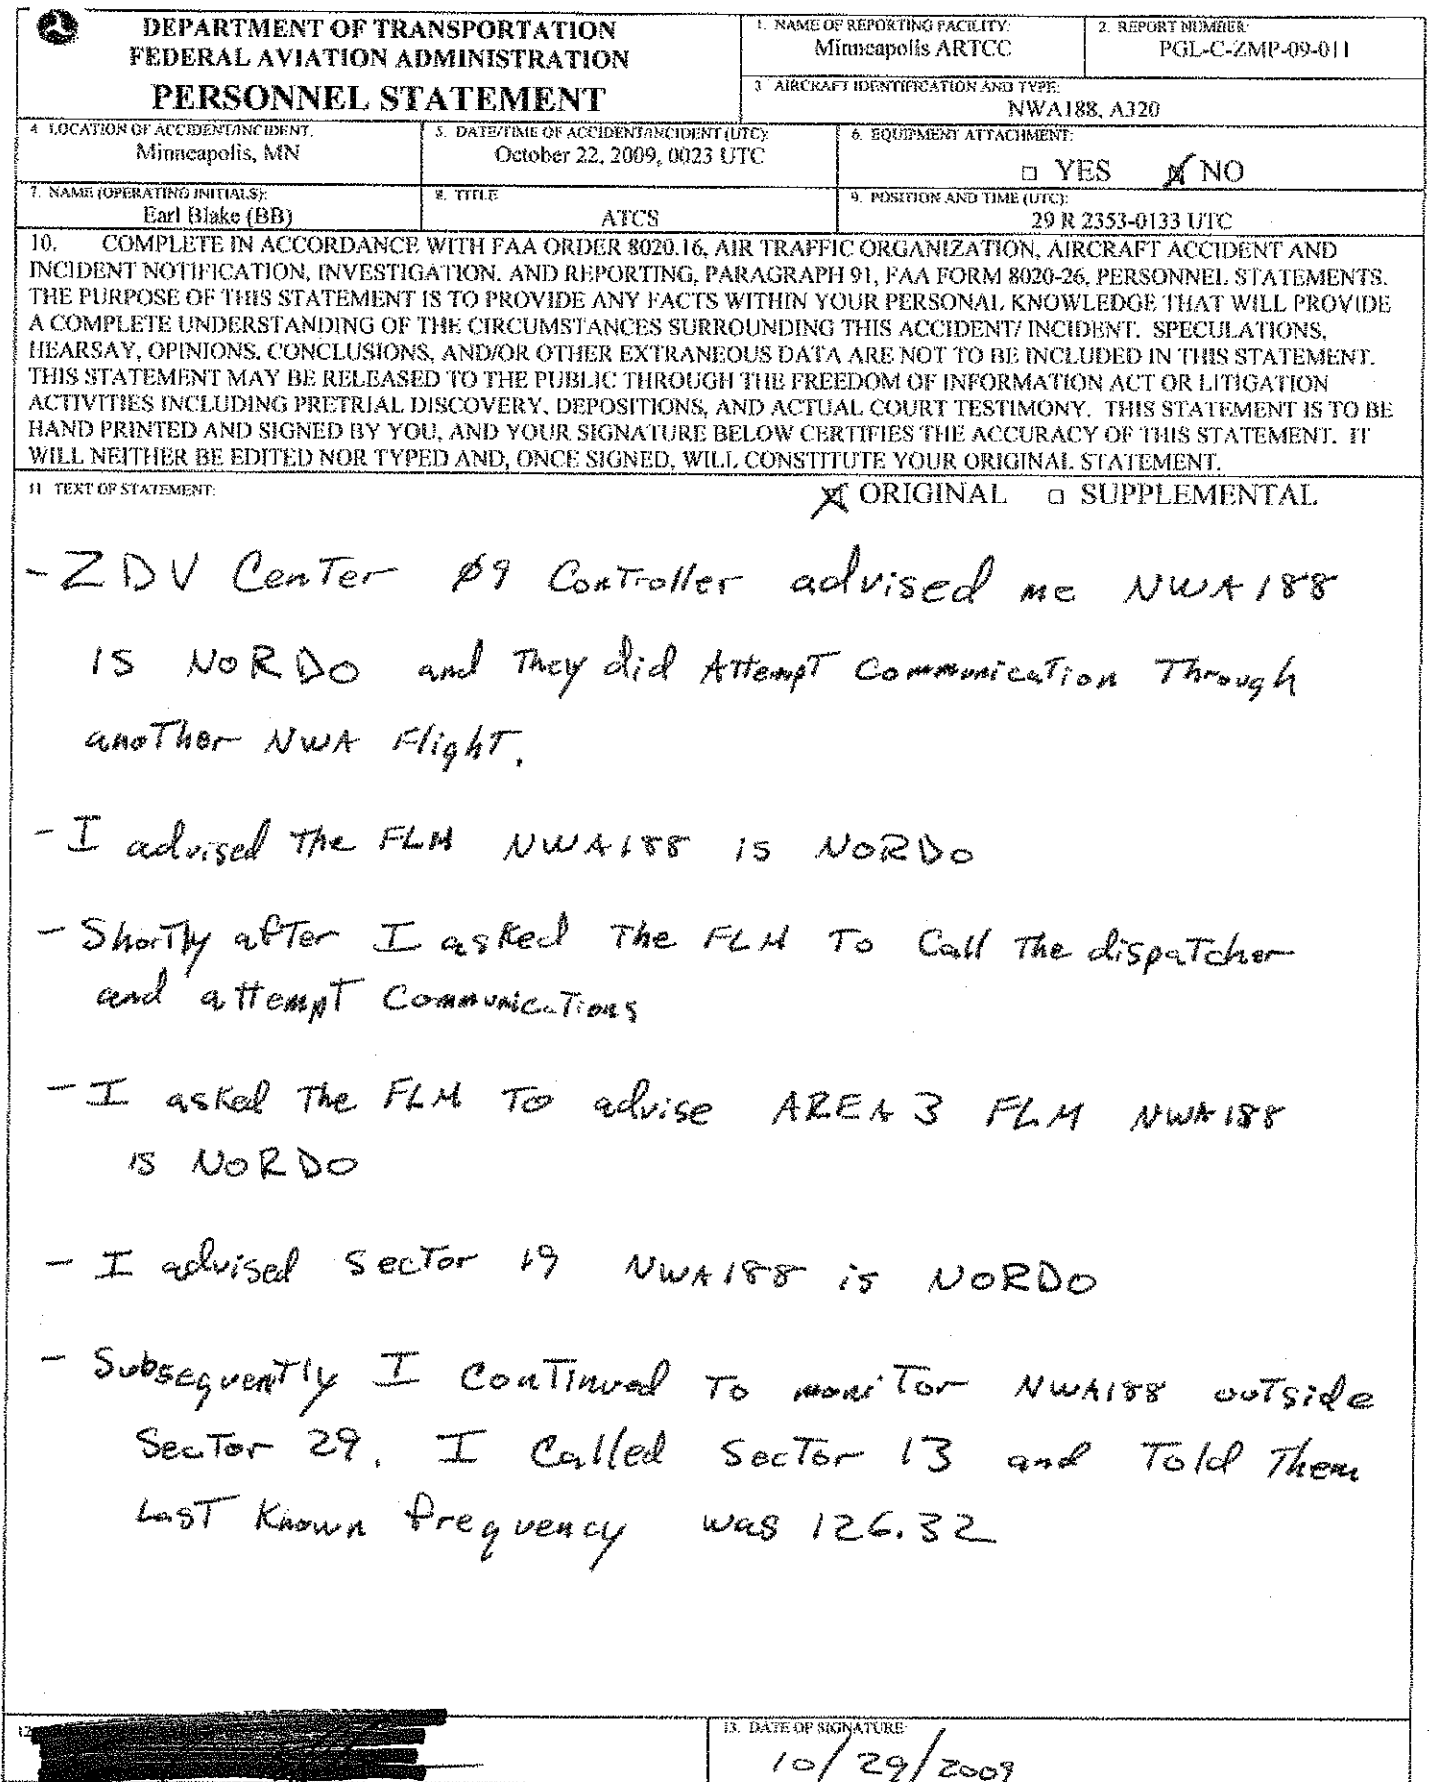 DEPARTMENT OF TRANSPORTATION
FEDERAL AVIATION ADMINISTRATION
PERSONNEL STATEMENT
1. NAME OF REPORTING FACILITY:
Minneapolis ARTCC
2. REPORT NUMBER:
PGL-C-ZMP-09-011
3 AIRCRAFT IDENTIFICATION AND TYPE:
NWA188, A320
4. LOCATION OF ACCIDENT/INCIDENT.
Minneapolis, MN
5. DATE/TIME OF ACCIDENT/INCIDENT (UTC):
October 22, 2009, 0023 UTC
6. EQUIPMENT ATTACHMENT:
□ YES ☒ NO
7. NAME (OPERATING INITIALS):
Earl Blake (BB)
8. TITLE
ATCS
9. POSITION AND TIME (UTC):
29 R 2353-0133 UTC
10. COMPLETE IN ACCORDANCE WITH FAA ORDER 8020.16, AIR TRAFFIC ORGANIZATION, AIRCRAFT ACCIDENT AND
INCIDENT NOTIFICATION, INVESTIGATION. AND REPORTING, PARAGRAPH 91, FAA FORM 8020-26, PERSONNEL STATEMENTS.
THE PURPOSE OF THIS STATEMENT IS TO PROVIDE ANY FACTS WITHIN YOUR PERSONAL KNOWLEDGE THAT WILL PROVIDE
A COMPLETE UNDERSTANDING OF THE CIRCUMSTANCES SURROUNDING THIS ACCIDENT/ INCIDENT. SPECULATIONS,
HEARSAY, OPINIONS. CONCLUSIONS, AND/OR OTHER EXTRANEOUS DATA ARE NOT TO BE INCLUDED IN THIS STATEMENT.
THIS STATEMENT MAY BE RELEASED TO THE PUBLIC THROUGH THE FREEDOM OF INFORMATION ACT OR LITIGATION
ACTIVITIES INCLUDING PRETRIAL DISCOVERY, DEPOSITIONS, AND ACTUAL COURT TESTIMONY. THIS STATEMENT IS TO BE
HAND PRINTED AND SIGNED BY YOU, AND YOUR SIGNATURE BELOW CERTIFIES THE ACCURACY OF THIS STATEMENT. IT
WILL NEITHER BE EDITED NOR TYPED AND, ONCE SIGNED, WILL CONSTITUTE YOUR ORIGINAL STATEMENT.
11 TEXT OF STATEMENT:
☒ ORIGINAL □ SUPPLEMENTAL
- ZDV Center Ø9 Controller advised me NWA188
is NORDO and They did Attempt Communication Through
another NWA Flight.
- I advised The FLM NWA188 is NORDO
- Shortly after I asked The FLM To Call The dispatcher
and attempt Communications
- I asked The FLM To advise AREA 3 FLM NWA188
is NORDO
- I advised Sector 19 NWA188 is NORDO
- Subsequently I Continued To monitor NWA188 outside
Sector 29. I Called Sector 13 and Told Them
Last Known frequency was 126.32
12
13. DATE OF SIGNATURE:
10/29/2009